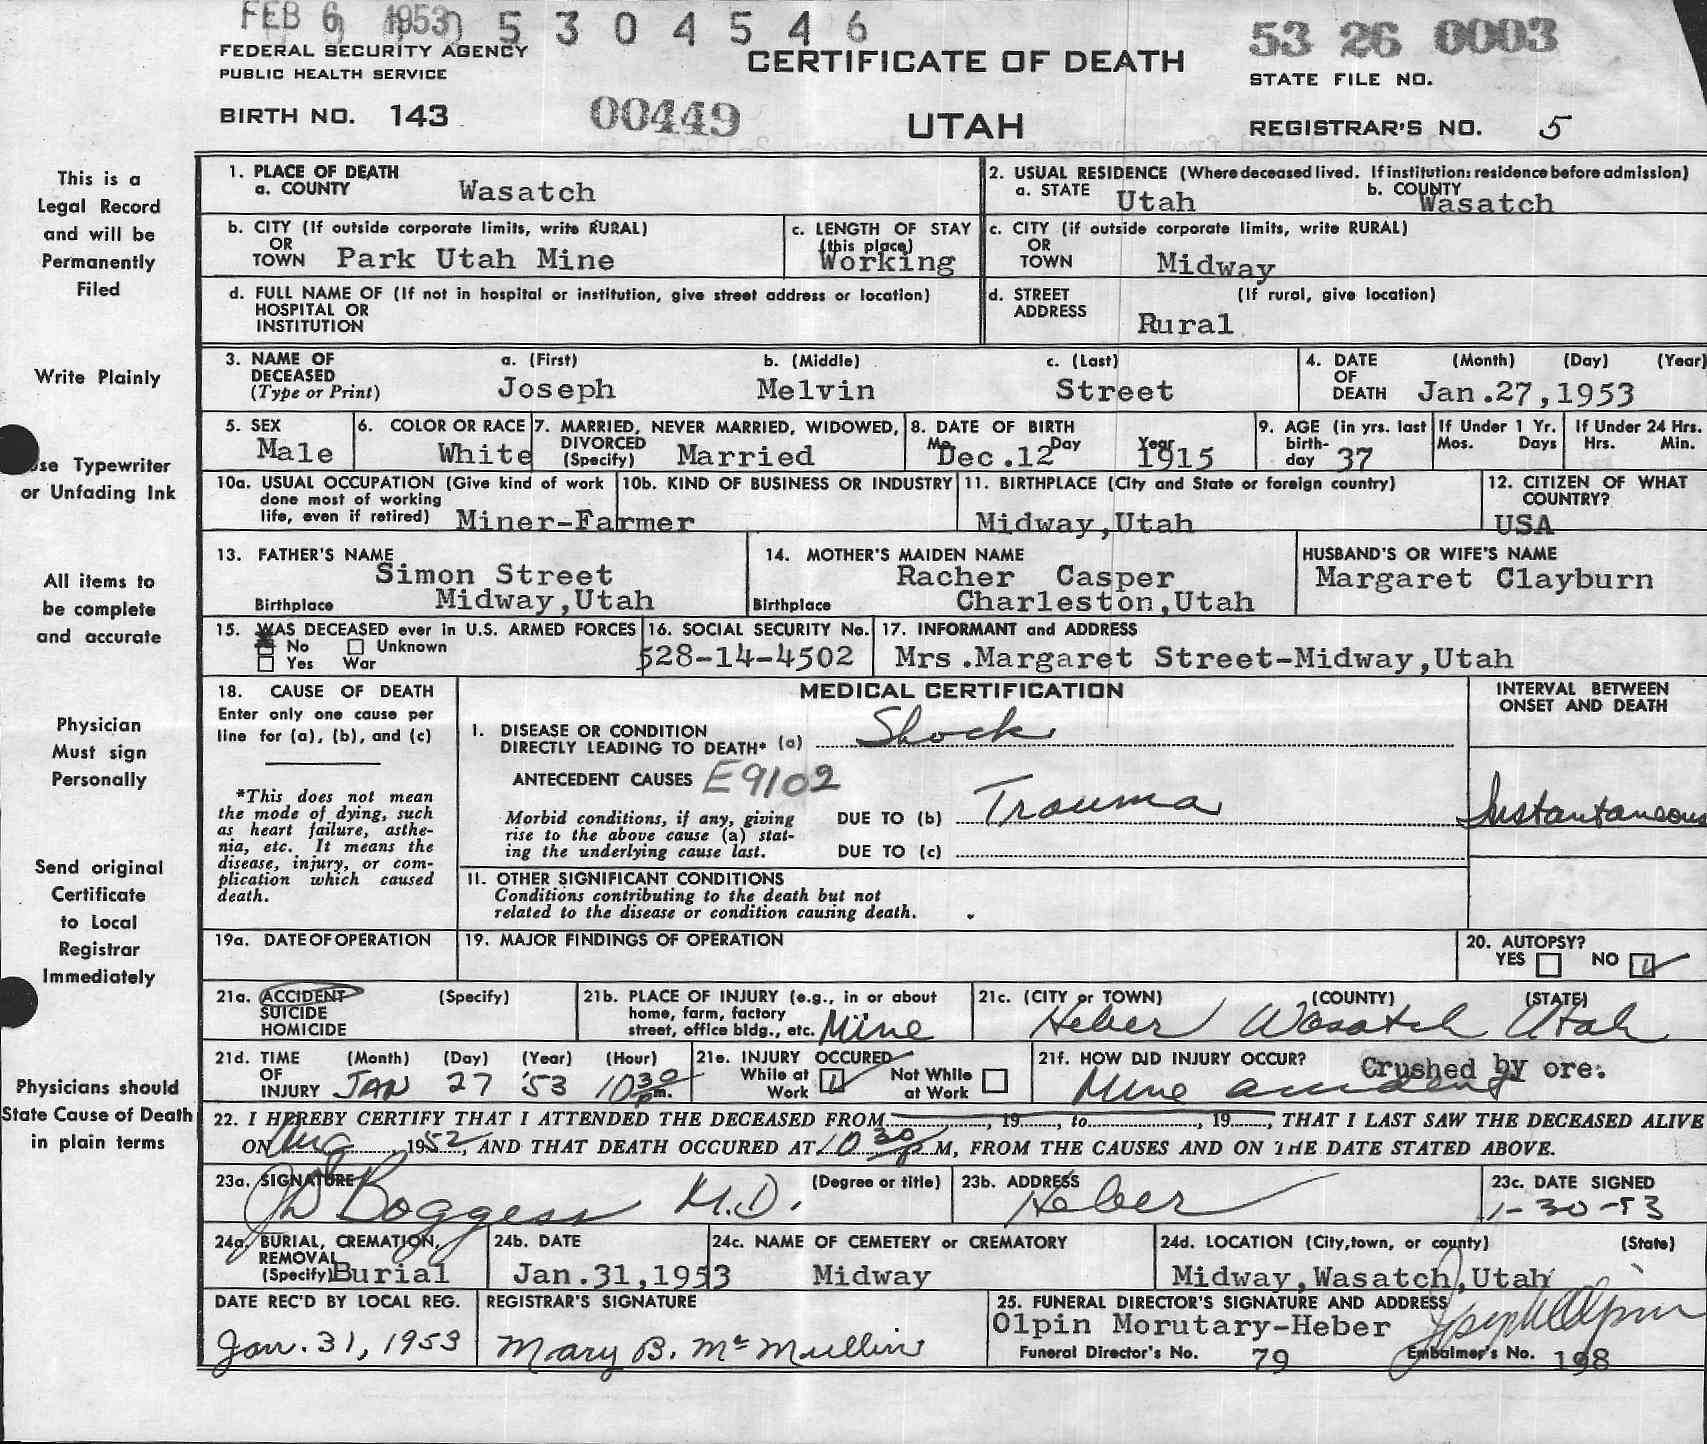 FEB 6 1953 5 3 0 4 5 4 6
53 26 0003
FEDERAL SECURITY AGENCY
PUBLIC HEALTH SERVICE
CERTIFICATE OF DEATH
STATE FILE NO.
BIRTH NO. 143
00449
UTAH
REGISTRAR'S NO. 5
This is a
Legal Record
and will be
Permanently
Filed
Write Plainly
Use Typewriter
or Unfading Ink
All items to
be complete
and accurate
Physician
Must sign
Personally
Send original
Certificate
to Local
Registrar
Immediately
Physicians should
State Cause of Death
in plain terms
1. PLACE OF DEATH
a. COUNTY Wasatch
2. USUAL RESIDENCE (Where deceased lived. If institution: residence before admission)
a. STATE Utah b. COUNTY Wasatch
b. CITY (If outside corporate limits, write RURAL)
OR
TOWN Park Utah Mine
c. LENGTH OF STAY
(this place)
Working
c. CITY (if outside corporate limits, write RURAL)
OR
TOWN Midway
d. FULL NAME OF (If not in hospital or institution, give street address or location)
HOSPITAL OR
INSTITUTION
d. STREET (If rural, give location)
ADDRESS Rural
3. NAME OF
DECEASED
(Type or Print)
a. (First) b. (Middle) c. (Last)
Joseph Melvin Street
4. DATE (Month) (Day) (Year)
OF
DEATH Jan.27,1953
5. SEX
Male
6. COLOR OR RACE
White
7. MARRIED, NEVER MARRIED, WIDOWED,
DIVORCED
(Specify) Married
8. DATE OF BIRTH
Mo. Day Year
Dec.12 1915
9. AGE (in yrs. last
birth-
day 37
If Under 1 Yr.
Mos. Days
If Under 24 Hrs.
Hrs. Min.
10a. USUAL OCCUPATION (Give kind of work
done most of working
life, even if retired) Miner-Farmer
10b. KIND OF BUSINESS OR INDUSTRY
11. BIRTHPLACE (City and State or foreign country)
Midway,Utah
12. CITIZEN OF WHAT
COUNTRY?
USA
13. FATHER'S NAME
Simon Street
Birthplace Midway,Utah
14. MOTHER'S MAIDEN NAME
Racher Casper
Birthplace Charleston,Utah
HUSBAND'S OR WIFE'S NAME
Margaret Clayburn
15. WAS DECEASED ever in U.S. ARMED FORCES
No Unknown
Yes War
16. SOCIAL SECURITY No.
528-14-4502
17. INFORMANT and ADDRESS
Mrs.Margaret Street-Midway,Utah
18. CAUSE OF DEATH
Enter only one cause per
line for (a), (b), and (c)
*This does not mean
the mode of dying, such
as heart failure, asthe-
nia, etc. It means the
disease, injury, or com-
plication which caused
death.
MEDICAL CERTIFICATION
INTERVAL BETWEEN
ONSET AND DEATH
I. DISEASE OR CONDITION
DIRECTLY LEADING TO DEATH* (a) Shock
ANTECEDENT CAUSES E9102
Morbid conditions, if any, giving
rise to the above cause (a) stat-
ing the underlying cause last.
DUE TO (b) Trauma
Instantaneous
DUE TO (c)
II. OTHER SIGNIFICANT CONDITIONS
Conditions contributing to the death but not
related to the disease or condition causing death.
19a. DATE OF OPERATION
19. MAJOR FINDINGS OF OPERATION
20. AUTOPSY?
YES NO
21a. ACCIDENT (Specify)
SUICIDE
HOMICIDE
21b. PLACE OF INJURY (e.g., in or about
home, farm, factory
street, office bldg., etc. Mine
21c. (CITY or TOWN) (COUNTY) (STATE)
Heber Wasatch Utah
21d. TIME (Month) (Day) (Year) (Hour)
OF
INJURY JAN 27 '53 10 30 pm.
21e. INJURY OCCURED
While at
Work
Not While
at Work
21f. HOW DID INJURY OCCUR? Crushed by ore.
Mine accident
22. I HEREBY CERTIFY THAT I ATTENDED THE DECEASED FROM , 19 , to , 19 , THAT I LAST SAW THE DECEASED ALIVE
ON Aug 1952, AND THAT DEATH OCCURED AT 10 30 p M, FROM THE CAUSES AND ON THE DATE STATED ABOVE.
23a. SIGNATURE (Degree or title)
Boggess M.D.
23b. ADDRESS
Heber
23c. DATE SIGNED
1-30-53
24a. BURIAL, CREMATION,
REMOVAL
(Specify) Burial
24b. DATE
Jan.31,1953
24c. NAME OF CEMETERY or CREMATORY
Midway
24d. LOCATION (City,town, or county) (State)
Midway,Wasatch,Utah
DATE REC'D BY LOCAL REG.
Jan. 31, 1953
REGISTRAR'S SIGNATURE
Mary B. McMullin
25. FUNERAL DIRECTOR'S SIGNATURE AND ADDRESS
Olpin Morutary-Heber Joseph Olpin
Funeral Director's No. 79 Embalmer's No. 198